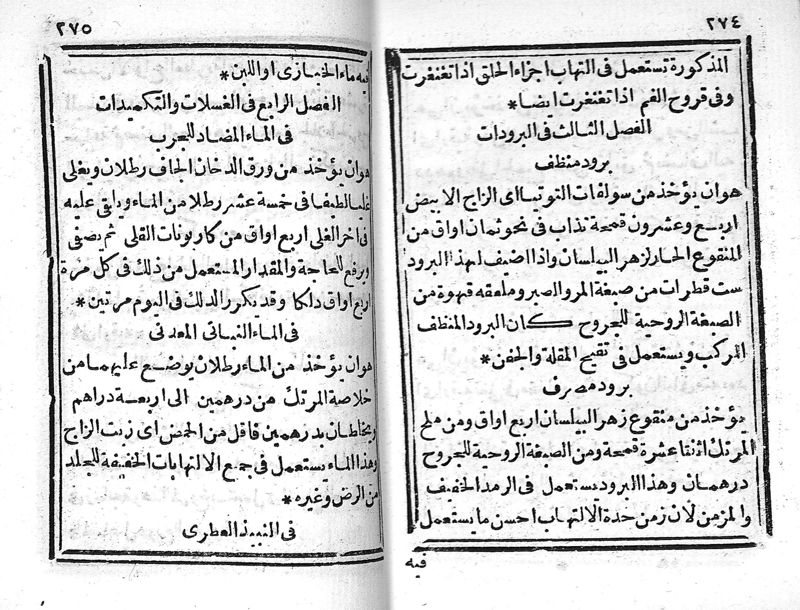 ٢٧٤
المذكورة تستعمل فى التهاب اجزاء الحلق اذا تغنغرت
وفى قروح الفم اذا تغنغرت ايضا*
الفصل الثالث فى البرودات
برود منظف
هو ان يؤخذ من سولفات التوتيا اى الزاج الابيض
اربع وعشرون قمحة تذاب فى نحو ثمان اواق من
المنقوع الحار لزهر البيلسان واذا اضيف لهذا البرود
ست قطرات من صبغة المر والصبر وملعقة قهوة من
الصبغة الروحية للجروح كان البرود المنظف
المركب ويستعمل فى تقيح المقلة والجفن*
برود مصرف
يؤخذ من منقوع زهر البيلسان اربع اواق ومن ملح
المرتك اثنتا عشرة قمحة ومن الصبغة الروحية للجروح
درهمان وهذا البرود يستعمل فى الرمد الخفيف
والمزمن لان زمن حدة الالتهاب احسن ما يستعمل
فيه
٢٧٥
فيه ماء الخبازى او اللبن*
الفصل الرابع فى الغسلات والتكميدات
فى الماء المضاد للجرب
هو ان يؤخذ من ورق الدخان الجاف رطلان ويغلى
غليا لطيفا فى خمسة عشر رطلا من الماء ويلقى عليه
فى اخر الغلى اربع اواق من كاربونات القلى ثم يصفى
ويرفع للحاجة والمقدار المستعمل من ذلك فى كل مرة
اربع اواق دلكا وقد يتكرر الدلك فى اليوم مرتين*
فى الماء النباتى المعدنى
هو ان يؤخذ من الماء رطلان يوضع عليهما من
خلاصة المرتك من درهمين الى اربعة دراهم
ويخلطان بدرهمين فاقل من الحمض اى زيت الزاج
وهذا الماء يستعمل فى جميع الالتهابات الخفيفة للجلد
من الرض وغيره*
فى النبيذ العطرى